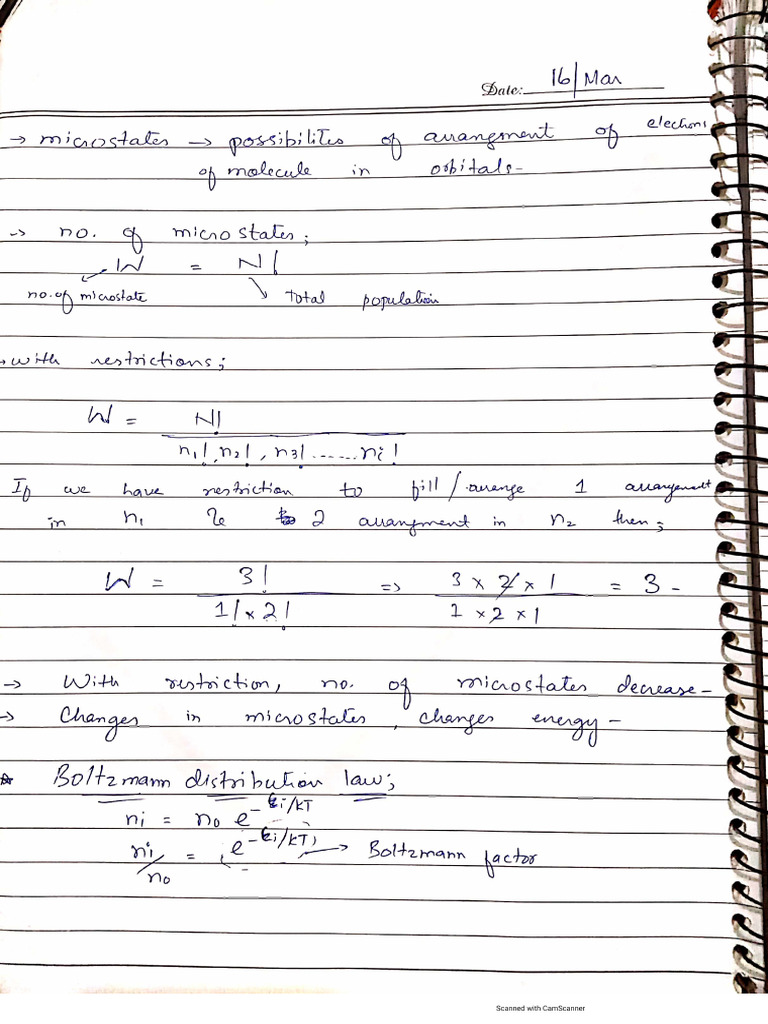 Date: 16/Mar
→ microstates → possibilites of arrangment of elections
of molecule in orbitals-
→ no. of microstates;
W = N!
no. of microstate total population
→ with restrictions;
W = N!
n₁!, n₂!, n₃! ...... ni!
If we have restriction to fill/arrange 1 arrangement
in n₁ & 2 arrangment in n₂ then;
W = 3! => 3 x 2 x 1 = 3 -
1! x 2! 1 x 2 x 1
→ With restriction, no. of microstates decrease-
→ Changes in microstates, changes energy-
☆ Boltzmann distribution law;
ni = n₀ e^-εi/KT
ni/n₀ = (e^-εi/KT) → Boltzmann factor
Scanned with CamScanner